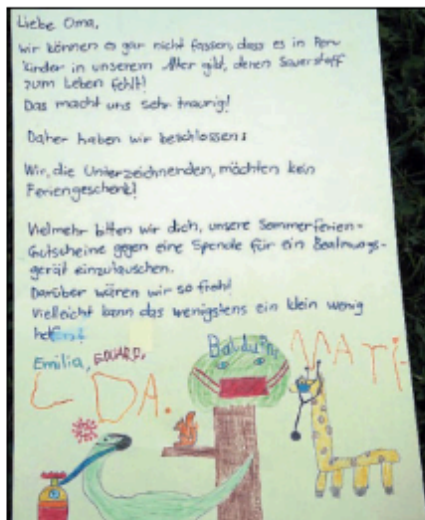 Liebe Oma,
wir können es gar nicht fassen, dass es in Peru
Kinder in unserem Alter gibt, denen Sauerstoff
zum Leben fehlt!
Das macht uns sehr traurig!
Daher haben wir beschlossen:
Wir, die Unterzeichnenden, möchten kein
Feriengeschenk!
Vielmehr bitten wir dich, unsere Sommerferien-
Gutscheine gegen eine Spende für ein Beatmungs-
gerät einzutauschen.
Darüber wären wir so froh!
Vielleicht kann das wenigstens ein klein wenig
helfen!
Emilia, EDUARD,
Balduin
MATH
DA.